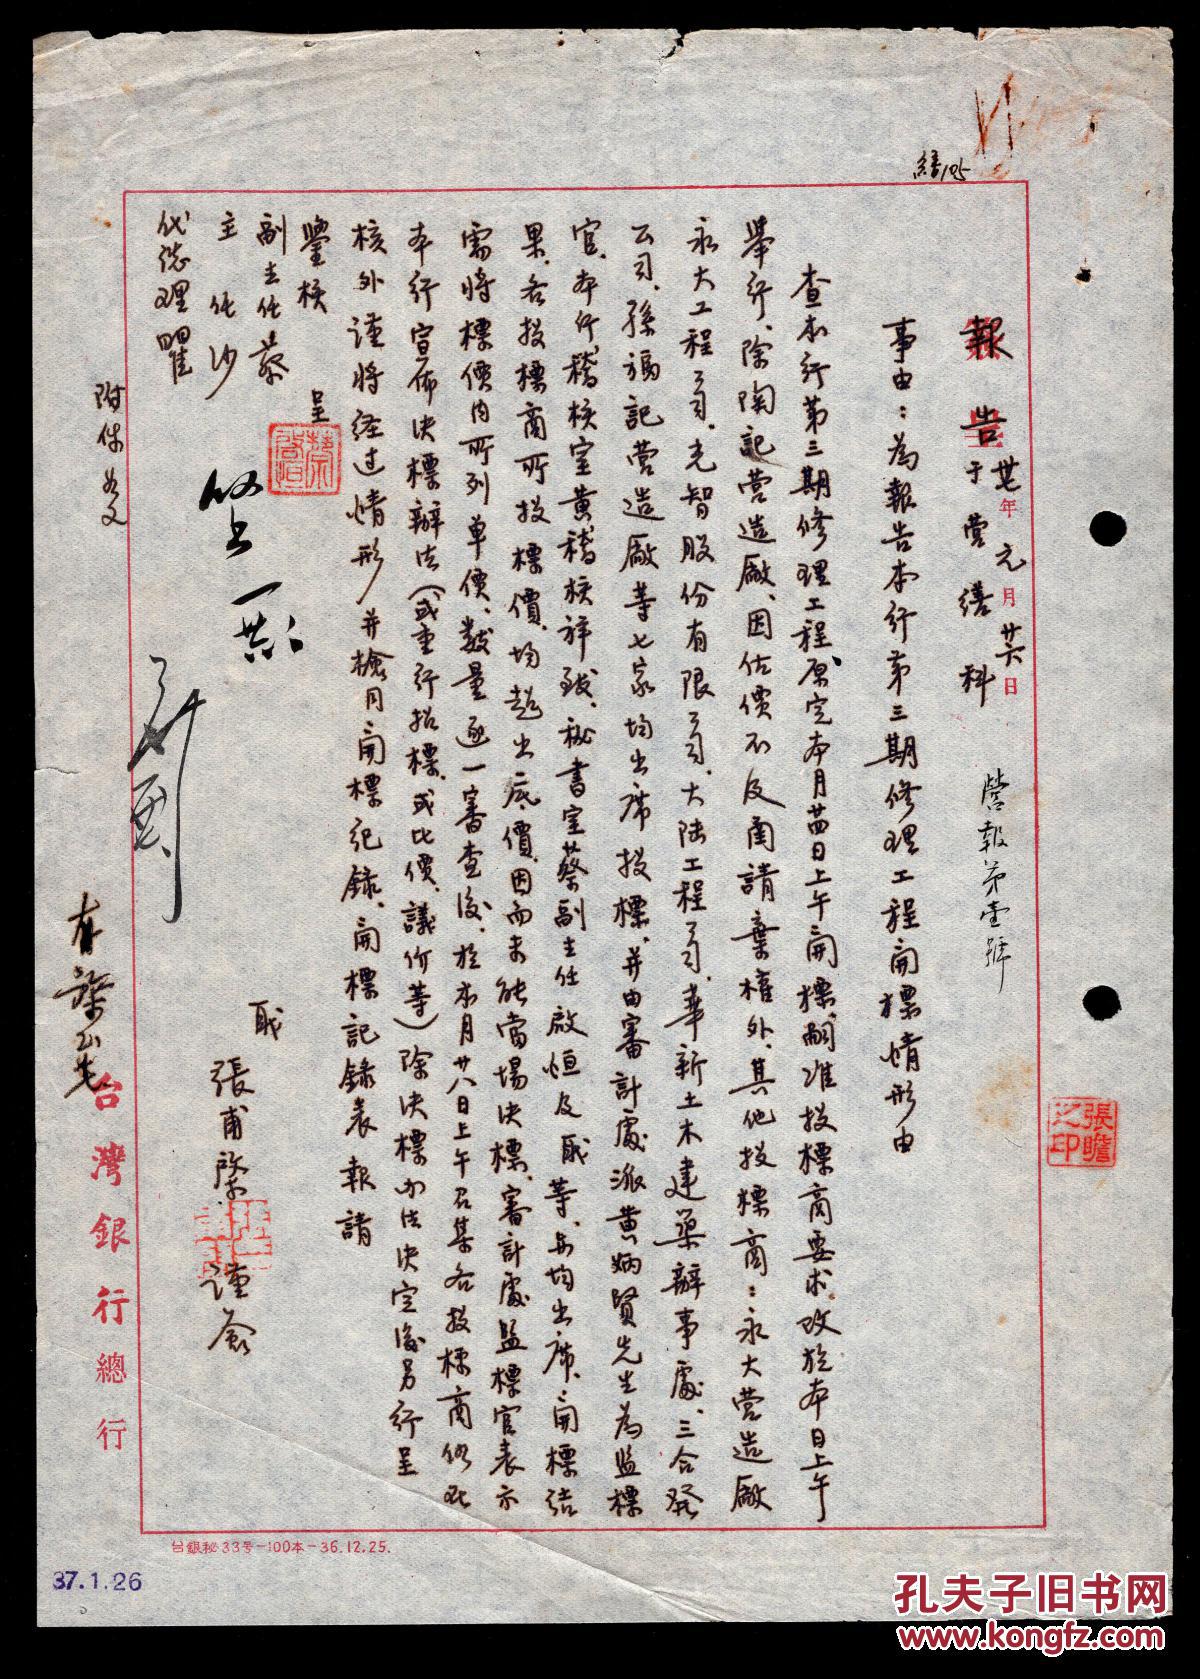 繕105
報告 卅七年元月廿六日
于營繕科
營報第壹號
事由：為報告本行第三期修理工程開標情形由
查本行第三期修理工程原定本月廿四日上午開標，嗣准投標商要求，改於本日上午
舉行、除陶記營造廠、因估價不及函請棄權外、其他投標商：永大營造廠
永大工程公司、光智股份有限公司、大陸工程公司、華新土木建築辦事處、三合發
公司、孫福記營造廠等七家均出席投標、并由審計處派黃炳賢先生為監標
官、本行稽核室黃稽核祥致、秘書室蔡副主任啟恒及職等、亦均出席、開標結
果、各投標商所投標價、均超出底價、因而未能當場決標、審計處監標官表示
需將標價內所列單價、數量逐一審查後、於本月廿八日上午召集各投標商俻
本行宣佈決標辦法（或重行招標、或比價、議价等）除決標办法決定後另行呈
核外謹將経过情形并檢同開標纪錄、開標記錄表報請
鑒核
呈
副主任蔡
主任沙
代总理瞿
附件如文
蔡啟恒
職
張甫棨 謹簽
張瞻之印
台灣銀行總行
台銀秘33号-100本-36.12.25.
37.1.26
孔夫子旧书网
www.kongfz.com